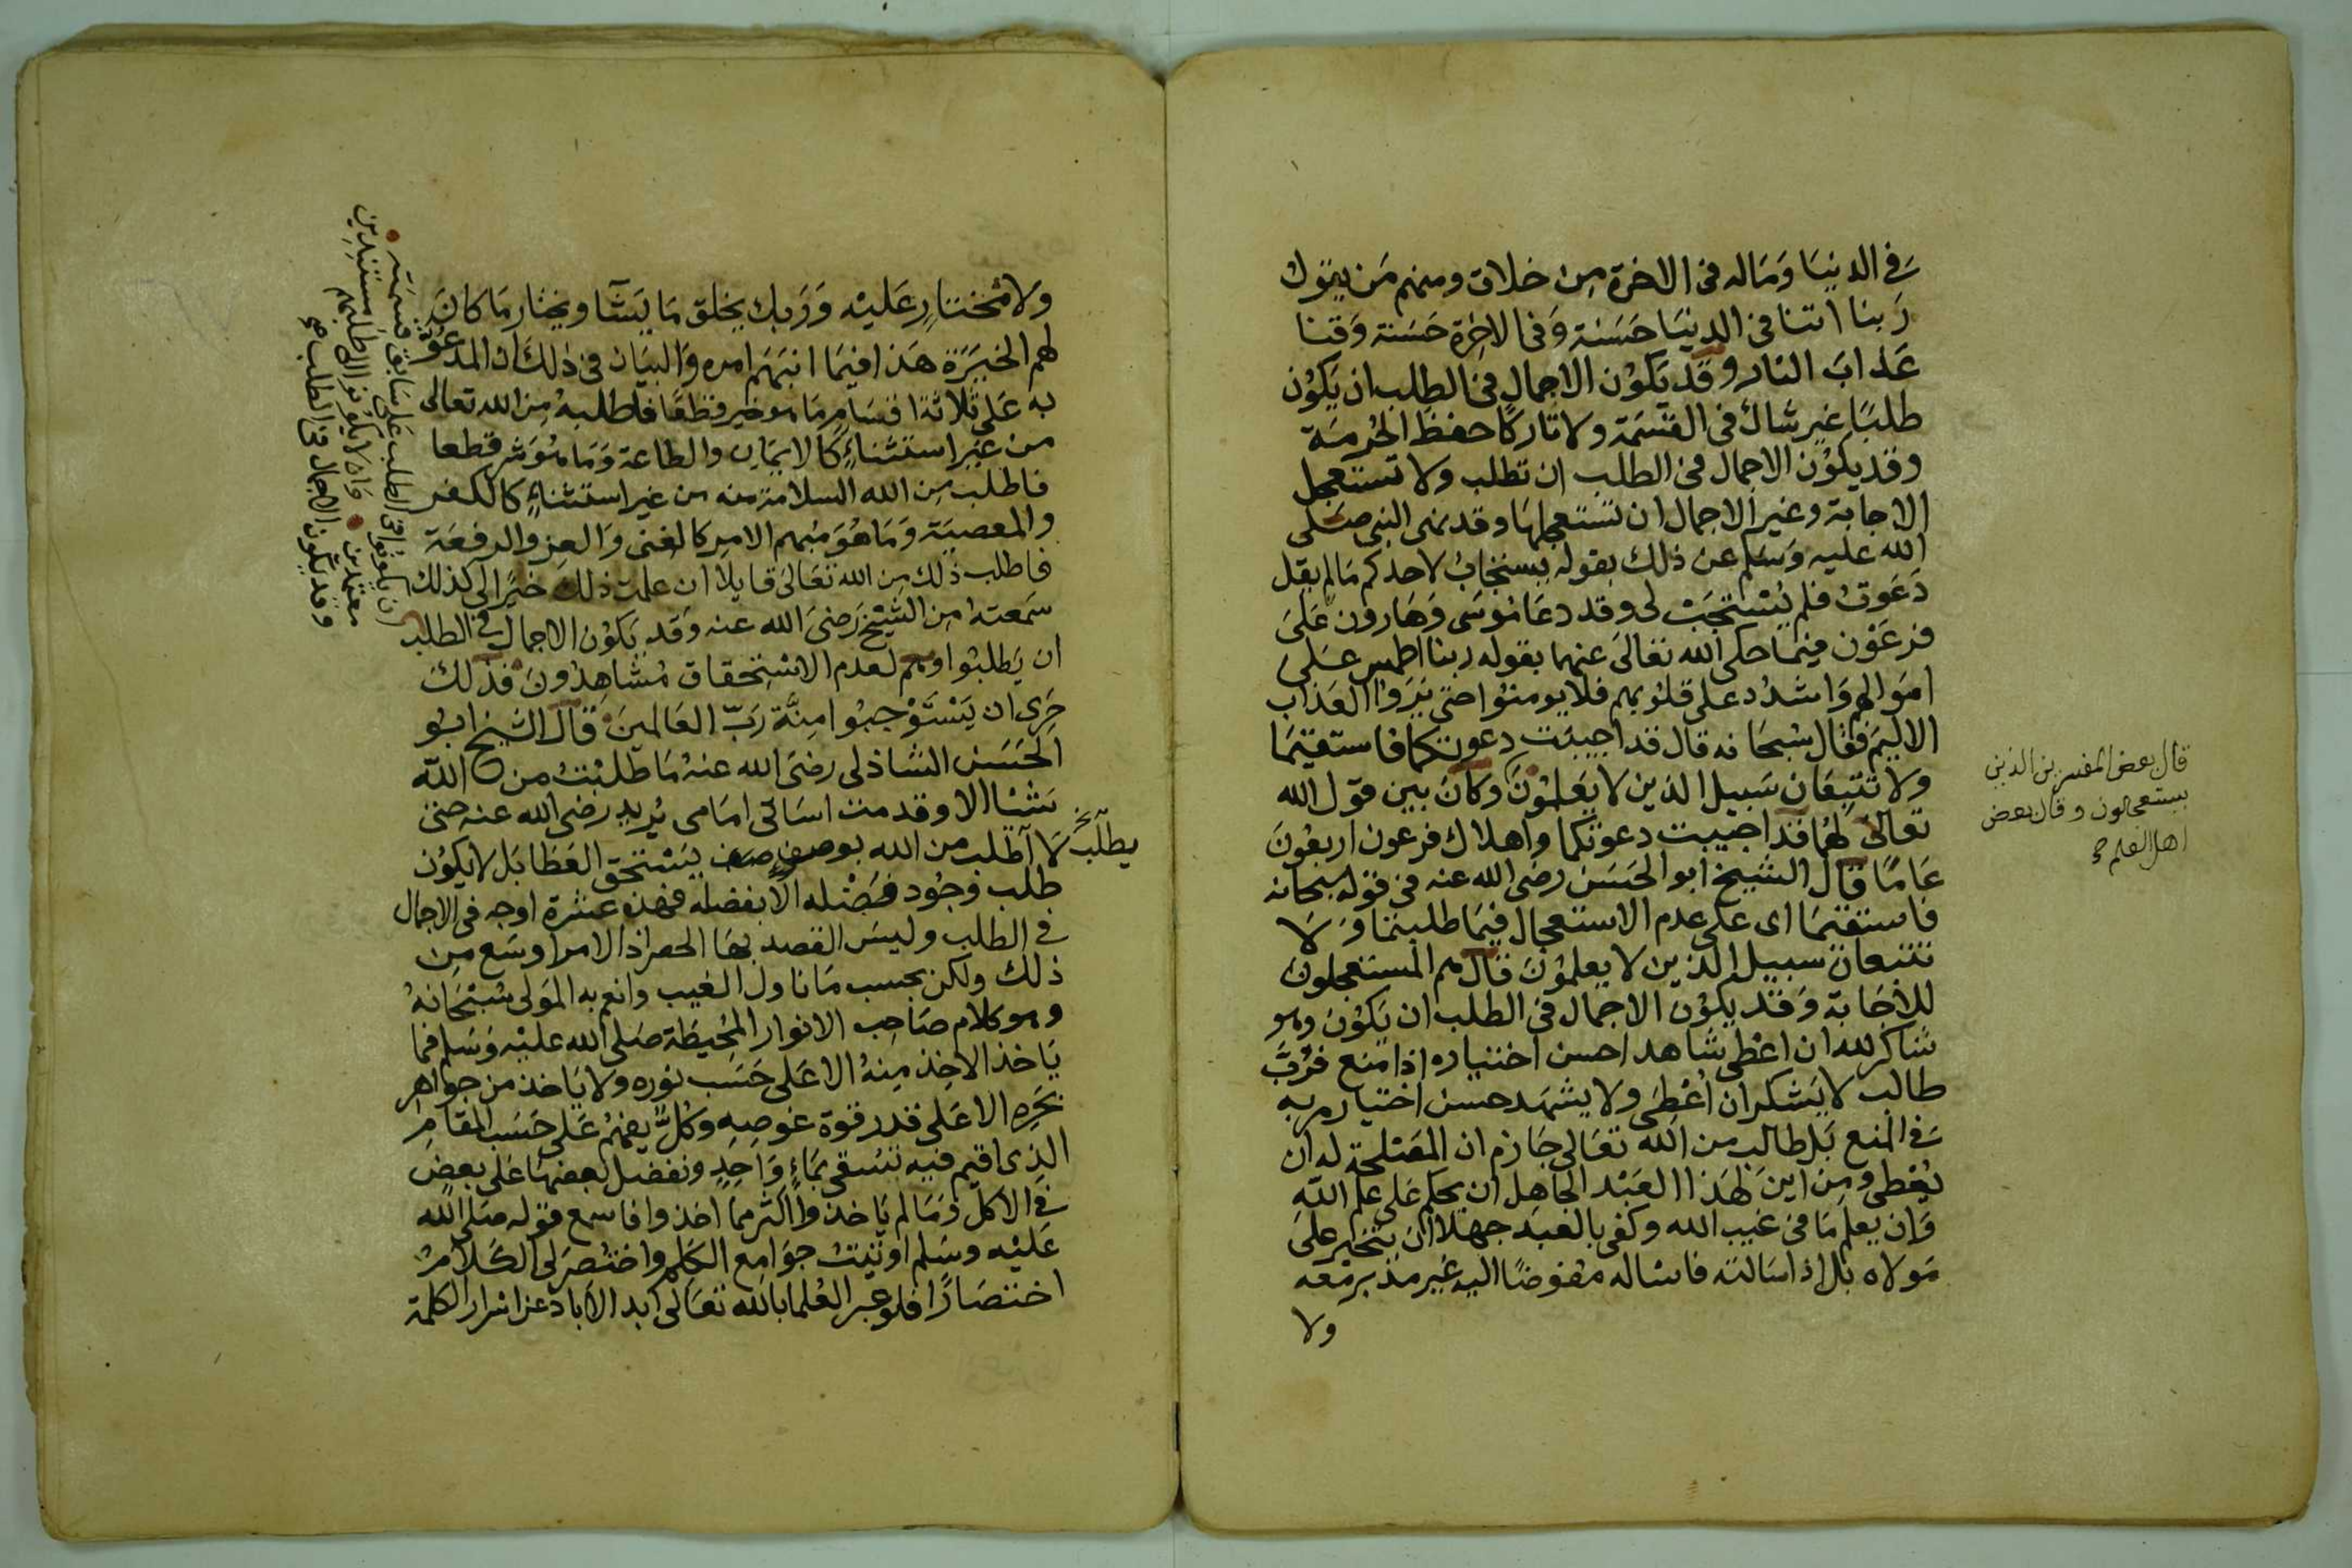 في الدنيا وماله في الاخرة من خلاق ومنهم من يقول
ربنا اتنا في الدنيا حسنة وفي الاخرة حسنة وقنا
عذاب النار وقد يكون الاجمال في الطلب ان يكون
طلبا غير شاك في القسمة ولا تاركا حفظ الحرمة
وقد يكون الاجمال في الطلب ان تطلب ولا تستعجل
الاجابة وغير الاجمال ان تستعجلها وقد نهى النبي صلى
الله عليه وسلم عن ذلك بقوله يستجاب لاحدكم مالم يقل
دعوت فلم يستجب لي وقد دعا موسى وهارون على
فرعون فيما حكى الله تعالى عنهما بقوله ربنا اطمس على
اموالهم واشدد على قلوبهم فلا يومنوا حتى يروا العذاب
الاليم فقال سبحانه قال قد اجيبت دعوتكما فاستقيما
ولا تتبعان سبيل الذين لا يعلمون وكان بين قول الله
تعالى لهما قد اجيبت دعوتكما واهلاك فرعون اربعون
عاما قال الشيخ ابو الحسن رضى الله عنه في قوله سبحانه
فاستقيما اى على عدم الاستعجال فيما طلبتما ولا
تتبعان سبيل الذين لا يعلمون قال هم المستعجلون
للاجابة وقد يكون الاجمال في الطلب ان يكون وهو
شاكر لله ان اعطى شاهد احسن اختياره اذا منع فرب
طالب لا يشكر ان اعطى ولا يشهد حسن اختيار ربه
في المنع بل طالب من الله تعالى جازم ان المصلحة له ان
يعطى ومن اين لهذا العبد الجاهل ان يحكم على علم الله
وان يعلم ما في غيب الله وكفى بالعبد جهلا ان يتخير على
مولاه بل اذا سالته فاساله مفوضا اليه غير مدبر معه
ولا
قال بعض المفسرين الذين
يستعجلون وقال بعض
اهل العلم صح
ولا مختار عليه وربك يخلق ما يشآ ويختار ما كان
لهم الخيرة هذا فيما انبهم امره والبيان في ذلك ان المدعو
به على ثلاثة اقسام ما هو خير قطعا فاطلبه من الله تعالى
من غير استثناء كالايمان والطاعة وما هو شر قطعا
فاطلب من الله السلامة منه من غير استثناء كالكفر
والمعصية وما هو مبهم الامر كالغنى والعز والرفعة
فاطلب ذلك من الله تعالى قايلا ان علمت ذلك خيرا لي كذلك
سمعته من الشيخ رضى الله عنه وقد يكون الاجمال في الطلب
ان يطلبوا وهم لعدم الاستحقاق مشاهدون فذلك
حرى ان يستوجبوا منة رب العالمين قال الشيخ ابو
الحسن الشاذلى رضى الله عنه ما طلبت من الله
شيا الا وقدمت اساتى امامى يريد رضى الله عنه حتى
لا اطلب من الله بوصف يستحق العطا بل لا يكون
طلب وجود فضله الا بفضله فهذه عشرة اوجه في الاجمال
في الطلب وليس القصد بها الحصر اذ الامر اوسع من
ذلك ولكن بحسب ما ناول الغيب وانعم به المولى سبحانه
وهو كلام صاحب الانوار المحيطة صلى الله عليه وسلم فما
ياخذ الاخذ منه الا على حسب نوره ولا ياخذ من جواهر
بحره الا على قدر قوة غوصه وكل يفهم على حسب المقام
الذى اقيم فيه تسقى بماء واحد ونفضل بعضها على بعض
في الاكل وما لم ياخذوا اكثر مما اخذوا فاسمع قوله صلى الله
عليه وسلم اوتيت جوامع الكلم واختصر لى الكلام
اختصارا فلو عبر العلما بالله تعالى ابد الاباد عن اسرار الكلمة
يطلب خ
ان يكونوا في الطلب على سابق قسمته
معتمدين واذ لا يكونوا الى طلبهم مستندين
وقد يكون الاجمال في الطلب صح